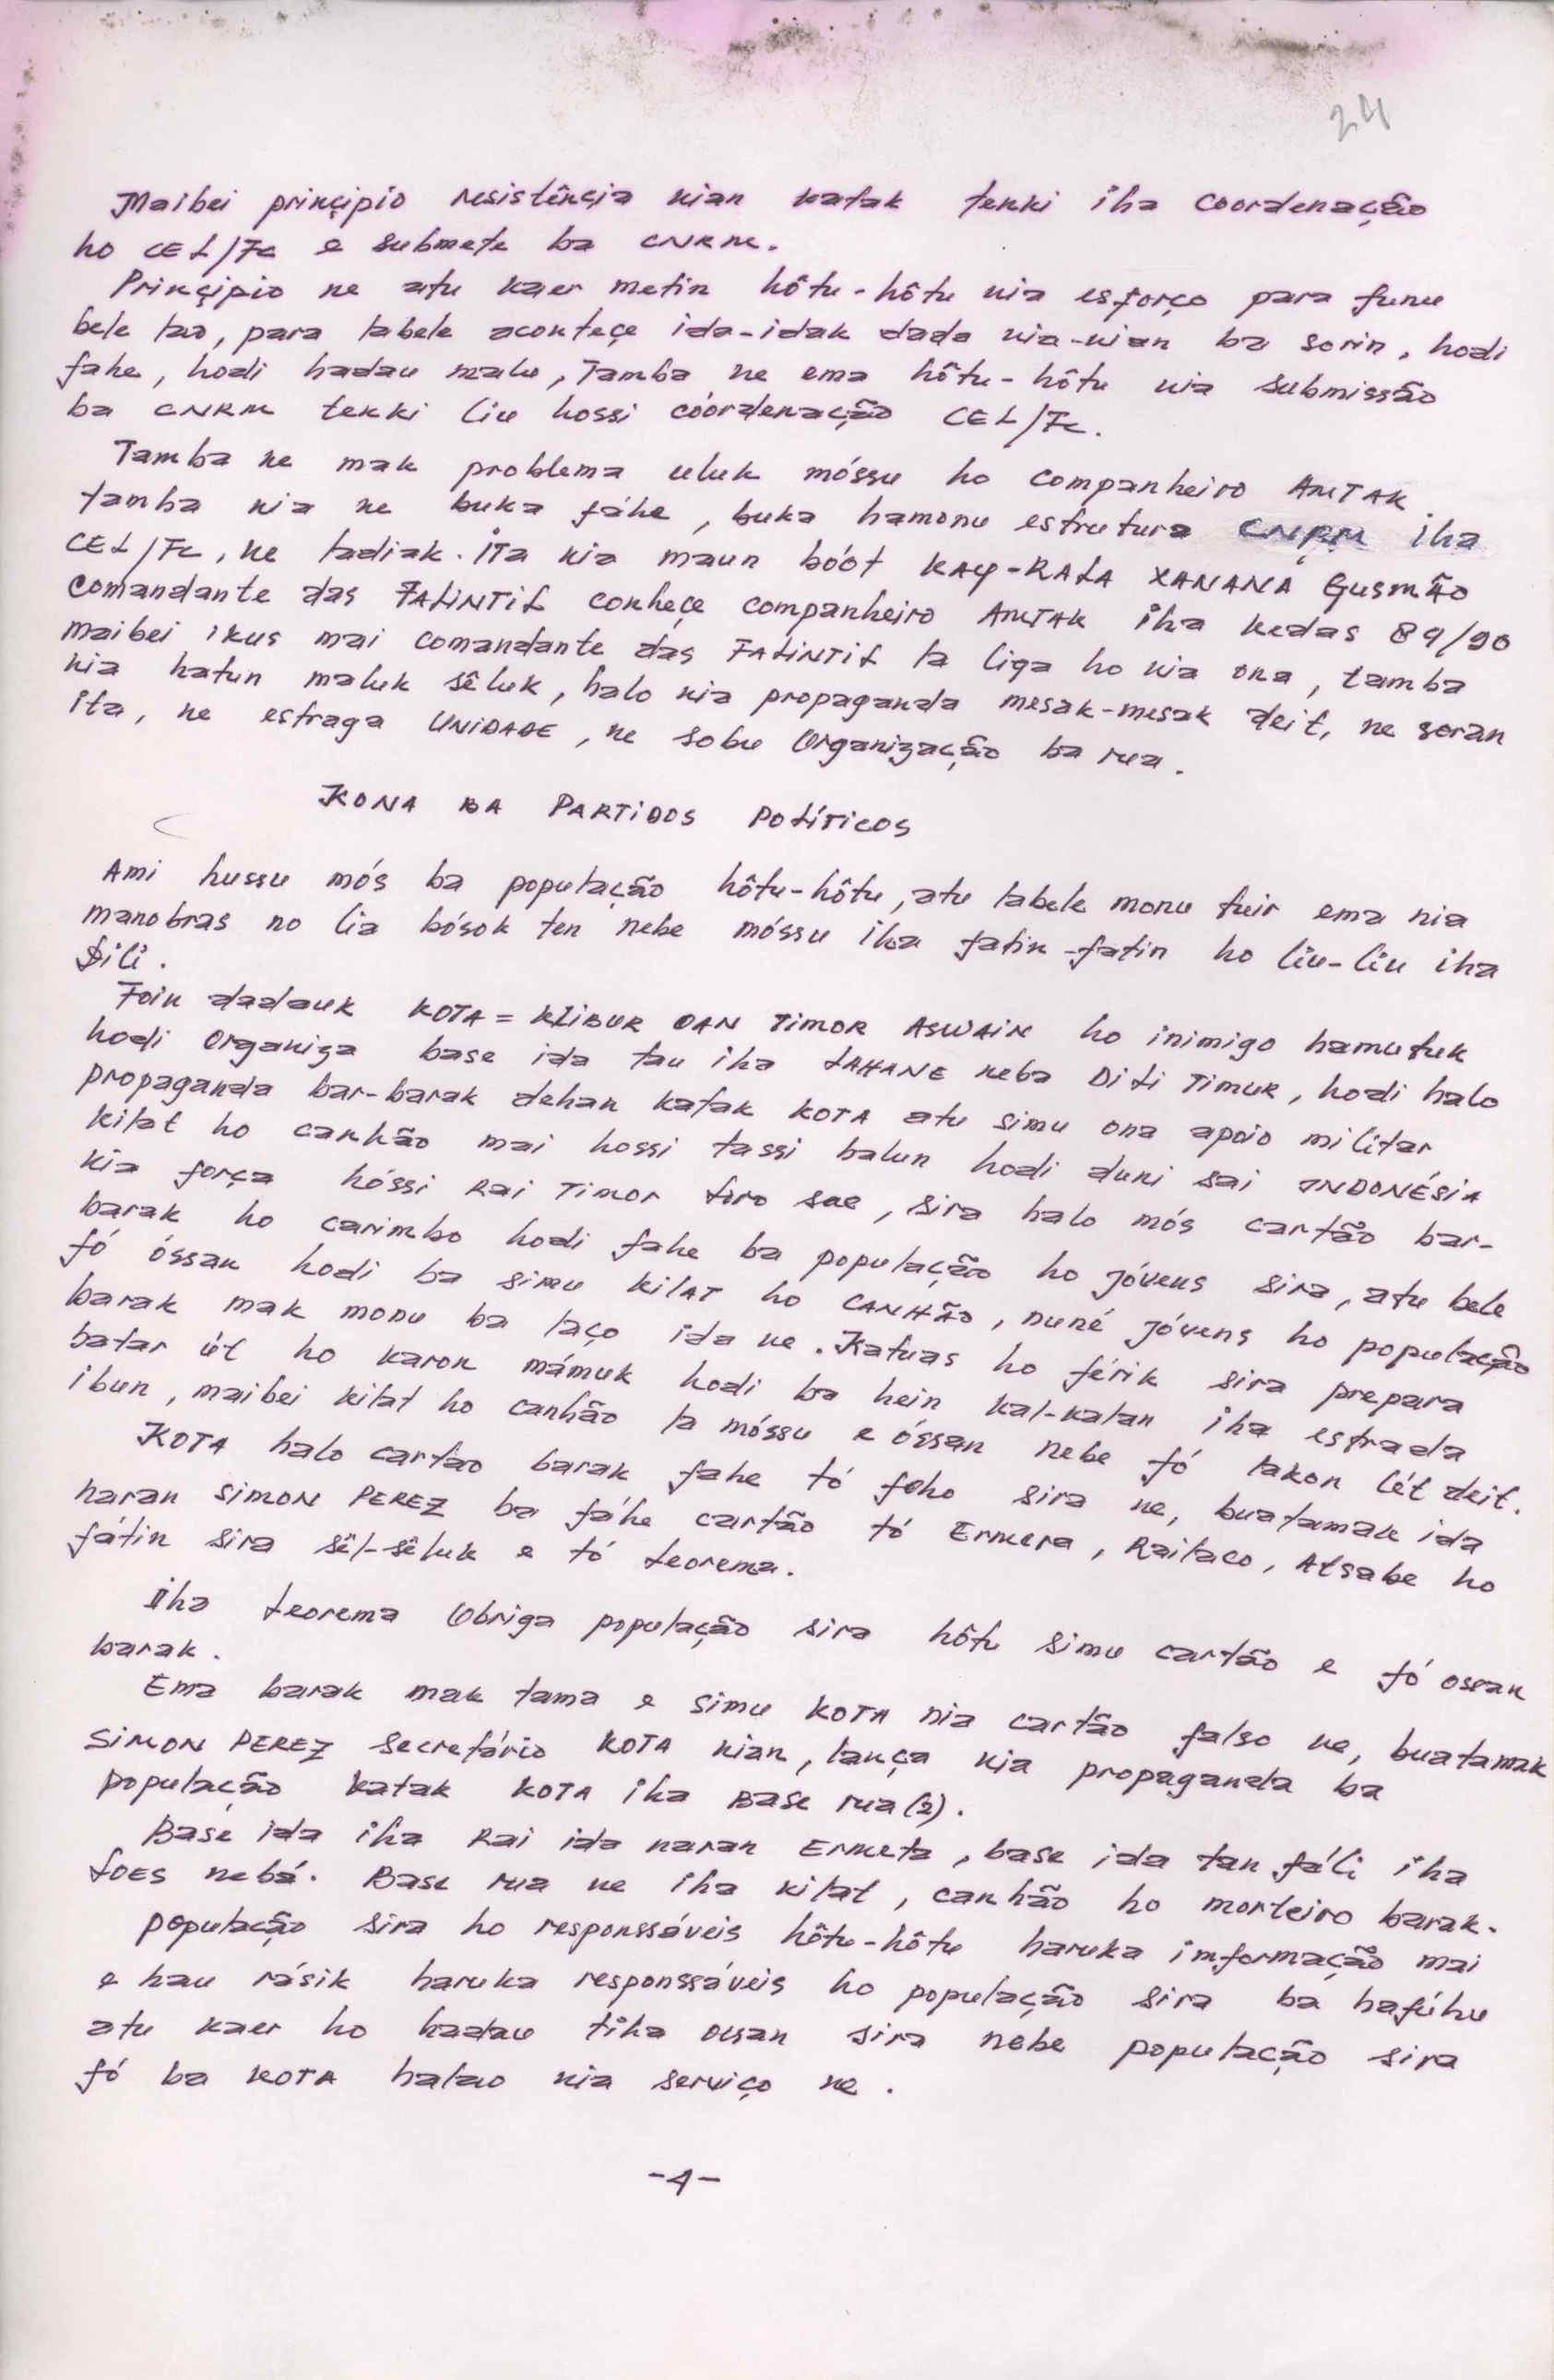 24
Maibei prinçipio resistênçia nian katak tenki iha coordenação
ho CEL/FC e submete ba CNRM.
Prinçipio ne atu kaer metin hôtu-hôtu nia esforço para funu
bele lao, para labele aconteçe ida-idak dada nia-nian ba sorin, hodi
fahe, hodi hadau malu, Tamba ne ema hôtu-hôtu nia submissão
ba CNRM tenki liu hossi cóordenação CEL/FC.
Tamba ne mak problema uluk móssu ho companheiro AMTAK
tamba nia ne buka fáhe, buka hamonu estrutura CNRM iha
CEL/FC, ne ladiak. Ita nia maun bóót KAY-RALA XANANA GUSMÃO
Comandante das FALINTIL conheçe companheiro AMTAK iha kedas 89/90
maibei ikus mai comandante das FALINTIL la liga ho nia ona, tamba
nia hatun maluk sêluk, halo nia propaganda mesak-mesak deit, ne soran
ita, ne estraga UNIDADE, ne sobu Organização ba rua.
KONA BA PARTIDOS POLÍTICOS
Ami hussu mós ba população hôtu-hôtu, atu labele monu tuir ema nia
manobras no lia bósok ten nebe móssu iha fatin-fatin ho liu-liu iha
Dili.
Foin dadauk KOTA = KLIBUR OAN TIMOR ASWAIN ho inimigo hamutuk
hodi Organiza base ida tau iha LAHANE neba DILI TIMUR, hodi halo
propaganda bar-barak dehan katak KOTA atu simu ona apoio militar
kilat ho canhão mai hossi tassi balun hodi duni sai INDONÉSIA
nia força hóssi Rai Timor Loro sae, sira halo mós cartão bar-
barak ho carimbo hodi fahe ba população ho jóvens sira, atu bele
fó óssan hodi ba simu kilAT ho CANHÃO, nuné jóvens ho população
barak mak monu ba laço ida ne. Katuas ho férik sira prepara
batar út ho karon mámuk hodi ba hein kal-kalan iha estrada
ibun, maibei kilat ho canhão la móssu e óssan nebe fó lakon lét deit.
KOTA halo cartao barak fahe tó foho sira ne, buatamak ida
naran SIMON PEREZ ba fáhe cartão tó Ermera, Railaco, Atsabe ho
fátin sira sêl-sêluk e tó Leorema.
Iha Leorema Obriga população sira hôtu simu cartão e fó ossan
barak.
Ema barak mak tama e simu KOTA nia cartão falso ne, buatamak
SIMON PEREZ Secretário KOTA nian, lança nia propaganda ba
população katak KOTA iha Base rua (2).
Base ida iha Rai ida naran Ermeta, base ida tan fáli iha
Loes nebá. Base rua ne iha kilat, canhão ho morteiro barak.
População sira ho responssáveis hôtu-hôtu haruka imformação mai
e hau rásik haruka responssáveis ho população sira ba hafúhu
atu kaer ho hadau tiha ossan sira nebe população sira
fó ba KOTA halao nia serviço ne.
-4-